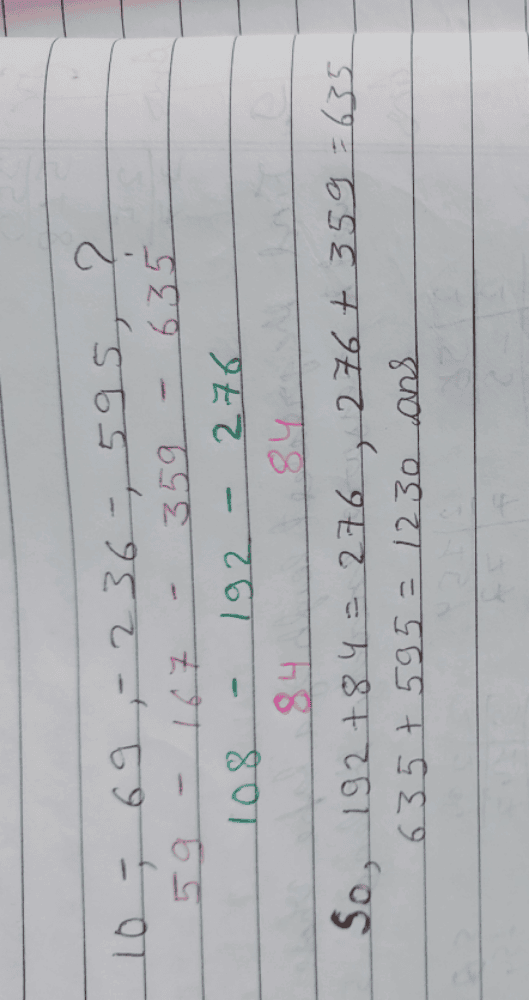 10 -, 69, - 236 -, 595, ?
59 - 167 - 359 - 635
108 - 192 - 276
84 84
So, 192 + 84 = 276, 276 + 359 = 635
635 + 595 = 1230 ans